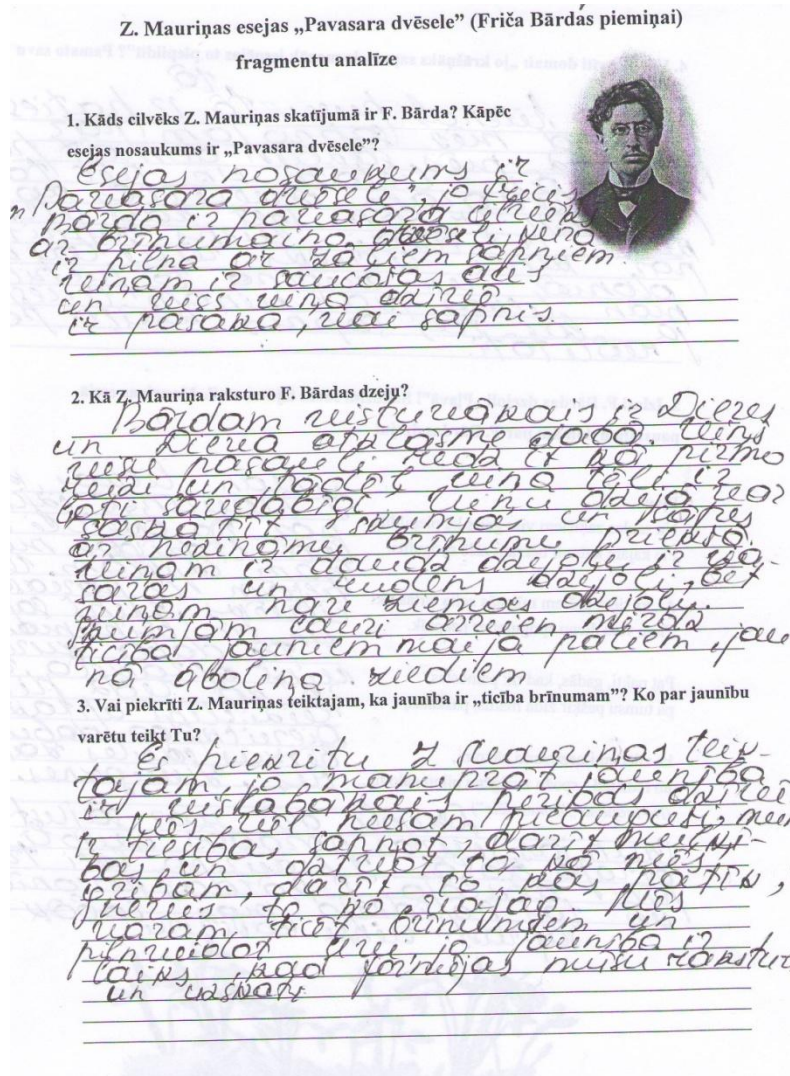 Z. Mauriņas esejas „Pavasara dvēsele” (Friča Bārdas piemiņai)
fragmentu analīze
1. Kāds cilvēks Z. Mauriņas skatījumā ir F. Bārda? Kāpēc
esejas nosaukums ir „Pavasara dvēsele”?
Esejas nosaukums ir
„Pavasara dvēsele”, jo Fricis
Bārda ir pavasara cilvēks
ar brīnumaino dvēseli, kura
ir pilna ar zaļiem sapņiem.
viņam ir acis
un viss viņa dzīvē
ir pasaka, vai sapnis.
2. Kā Z. Mauriņa raksturo F. Bārdas dzeju?
Bārdam vistuvākais ir Dievs
un Dieva atblāsme dabā. viņš
visu pasauli redz it kā pirmo
reizi un tādēļ viņa tēli ir
ļoti savdabīgi. viņu dzejā var
saskatīt skumjas un
ar nezināmu brīnumu priekšā.
viņam ir daudz dzejoļu, ir va-
saras un rudens dzejoļi, bet
viņam nav ziemas dzejoļu.
skumjām cauri arvien mirdz
ticība jauniem maija rītiem, jau
nā āboliņa ziediem
3. Vai piekrīti Z. Mauriņas teiktajam, ka jaunība ir „ticība brīnumam”? Ko par jaunību
varētu teikt Tu?
Es piekrītu Z Mauriņas teik-
tajam, jo manuprāt jaunība
ir vislabākais periods dzīvē
Mēs vēl neesam pieauguši, mums
ir tiesības, sapņot, darīt muļķī-
bas un dzīvot tā kā mēs
gribam, darīt to kas patīk,
to ko vajag. Mēs
varam ticēt brīnumiem un
pilnveidot sevi, jo jaunība ir
laiks kad formējas mūsu raksturs
un uzskati